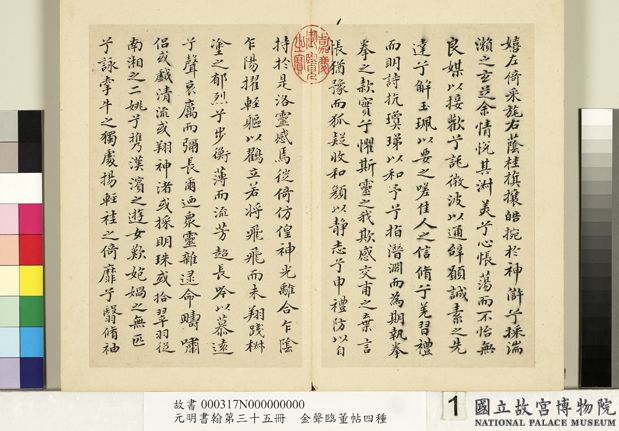 嬉左倚采旄右蔭桂旗攘皓捥於神滸兮採湍
瀨之玄芝余情悅其淑美兮心悵蕩而不怡無
良媒以接歡兮託微波以通辭願誠素之先
達兮解玉珮以要之嗟佳人之信脩兮羌習禮
而明詩抗瓊珶以和予兮指潛淵而為期執拳
拳之款實兮懼斯靈之我欺感交甫之棄言
悵猶豫而狐疑收和顏以靜志兮申禮防以自
嘉慶御覽之寶
持於是洛靈感焉徙倚仿偟神光離合乍陰
乍陽擢輕軀以鶴立若將飛飛而未翔踐椒
塗之郁烈兮步衡薄而流芳超長吟以慕遠
兮聲哀厲而彌長爾迺眾靈雜遝命疇嘯
侶或戲清流或翔神渚或採明珠或拾翠羽從
南湘之二姚兮攜漢濱之遊女歎匏媧之無匹
兮詠牽牛之獨處揚輕袿之倚靡兮翳脩袖
故書 000317N000000000
元明書翰第三十五冊 金聲臨董帖四種
1
國立故宮博物院
NATIONAL PALACE MUSEUM